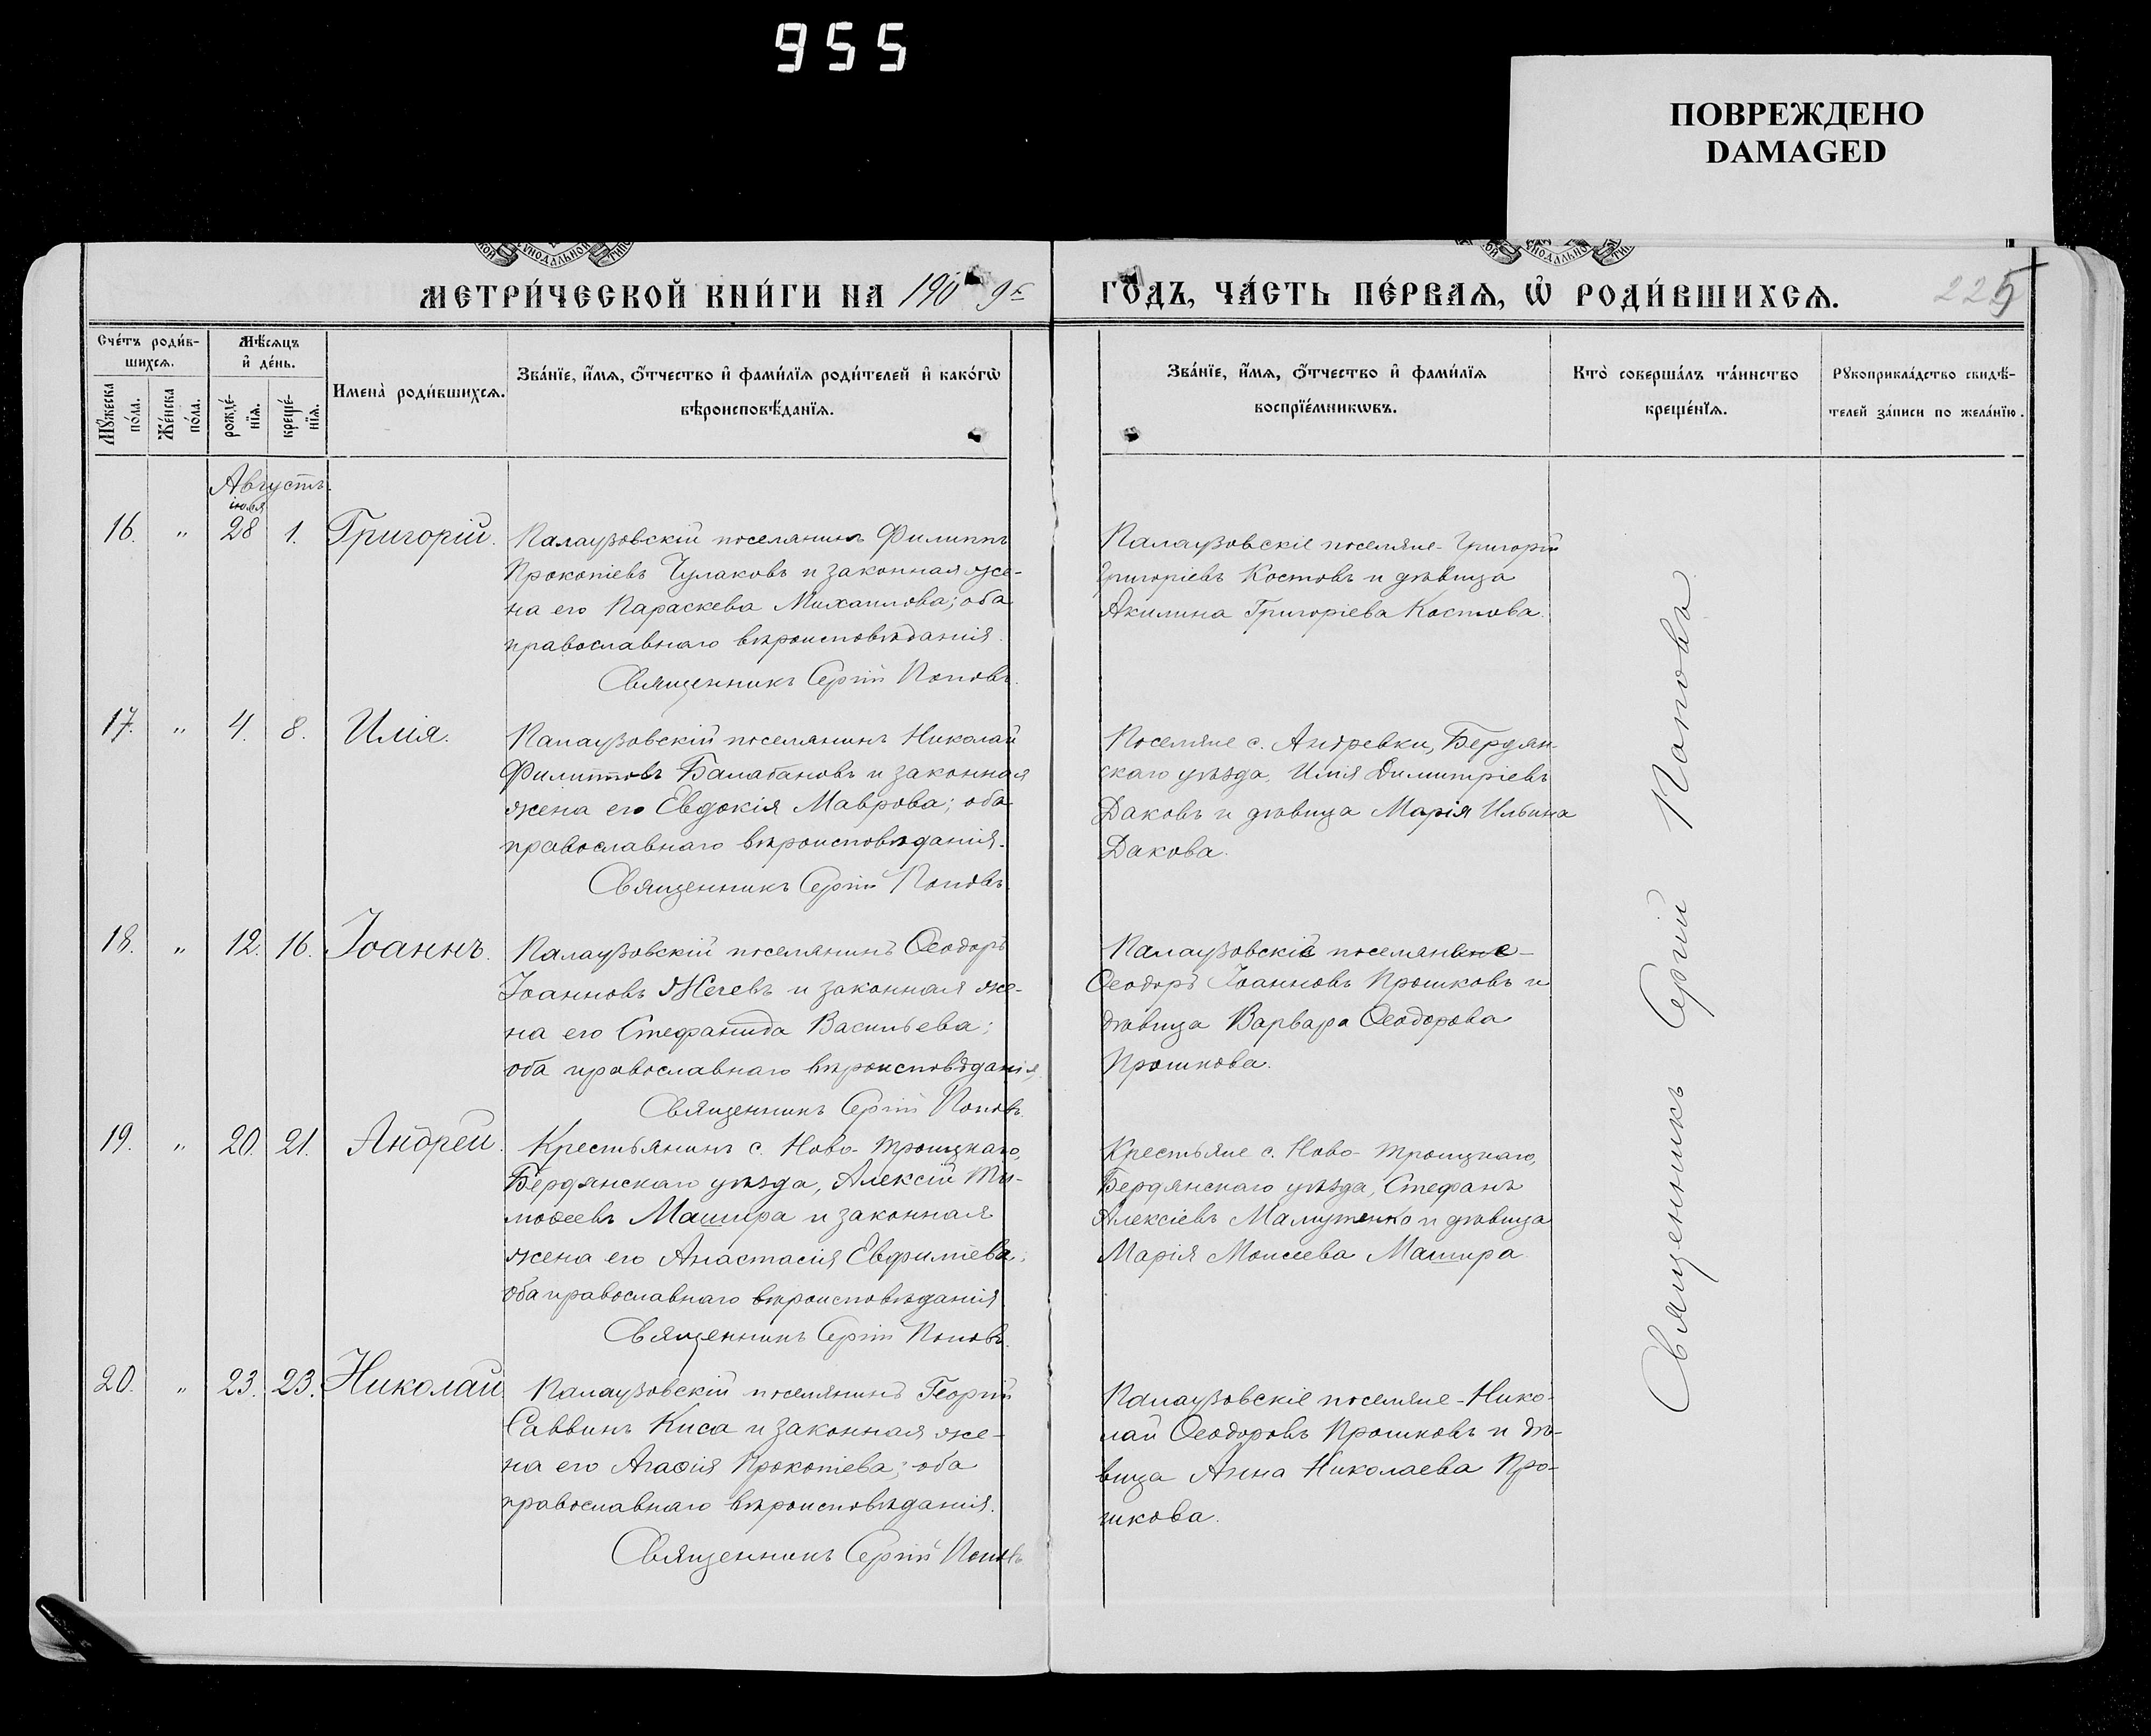 955
ПОВРЕЖДЕНО
DAMAGED
МЕТРИ́ЧЕСКОЙ КНИ́ГИ НА 1909 г.
ГО́ДЪ, ЧА́СТЬ ПЕ́РВАЯ, Ѡ҆ РОДИ́ВШИХСЯ.
225
Сче́тъ роди́в-
шихся.
Мѣ́сяцъ
и҆ де́нь.
Мꙋ́жеска
по́ла.
Же́нска
по́ла.
рожде́-
нїя.
креще́-
нїя.
Имена̀ роди́вшихся.
Зва́нїе, и҆́мя, ѻ҆́тчество и҆ фами́лїя роди́телей и҆ како́гѡ
вѣроисповѣ́данїя.
Зва́нїе, и҆́мя, ѻ҆́тчество и҆ фами́лїя
воспрїе́мникѡвъ.
Кто̀ соверша́лъ та́инство
креще́нїя.
Рꙋкоприкла́дство свидѣ́-
телей за́писи по жела́нїю.
Августъ.
іюля
16. " 28 1. Григорій.
Палаузовскій поселянинъ Филиппъ
Прокопіевъ Чулаковъ и законная же-
на его Параскева Михаилова; оба
православнаго вѣроисповѣданія.
Священникъ Сергій Поповъ.
Палаузовскіе поселяне - Григорій
Григоріевъ Костовъ и дѣвица
Акилина Григоріева Костова.
17. " 4. 8. Илія.
Палаузовскій поселянинъ Николай
Филипповъ Балабановъ и законная
жена его Евдокія Маврова; оба
православнаго вѣроисповѣданія.
Священникъ Сергій Поповъ.
Поселяне с. Андревки, Бердян-
скаго уѣзда, Илія Димитріевъ
Даковъ и дѣвица Марія Ильина
Дакова.
18. " 12. 16. Іоаннъ.
Палаузовскій поселянинъ Ѳеодоръ
Іоанновъ Жечевъ и законная же-
на его Стефанида Васильева;
оба православнаго вѣроисповѣданія.
Священникъ Сергій Поповъ.
Палаузовскіе поселяне -
Ѳеодоръ Іоанновъ Прошковъ и
дѣвица Варвара Ѳеодорова
Прошкова.
19. " 20. 21. Андрей.
Крестьянинъ с. Ново-Троицкаго,
Бердянскаго уѣзда, Алексій Ти-
моѳеевъ Машира и законная
жена его Анастасія Евфиміева;
оба православнаго вѣроисповѣданія
Священникъ Сергій Поповъ.
Крестьяне с. Ново-Троицкаго,
Бердянскаго уѣзда, Стефанъ
Алексіевъ Малутенко и дѣвица
Марія Моисеева Машира
20. " 23. 23. Николай
Палаузовскій поселянинъ Георгій
Саввинъ Киса и законная же-
на его Агаѳія Прокопіева; оба
православнаго вѣроисповѣданія.
Священникъ Сергій Поповъ
Палаузовскіе поселяне - Нико-
лай Ѳеодоровъ Прошковъ и дѣ-
вица Анна Николаева Про-
шкова.
Священникъ Сергій Поповъ